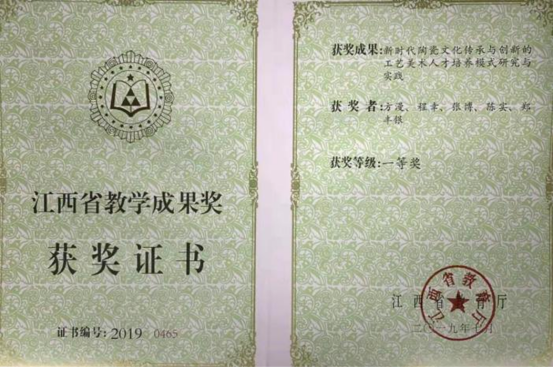 江西省教学成果奖
获奖证书
证书编号: 2019 0465
获奖成果: 新时代陶瓷文化传承与创新的
工艺美术人才培养模式研究与
实践
获奖者: 方漫、程幸、张博、陈实、郑
丰银
获奖等级: 一等奖
江西省教育厅
二〇一九年十月